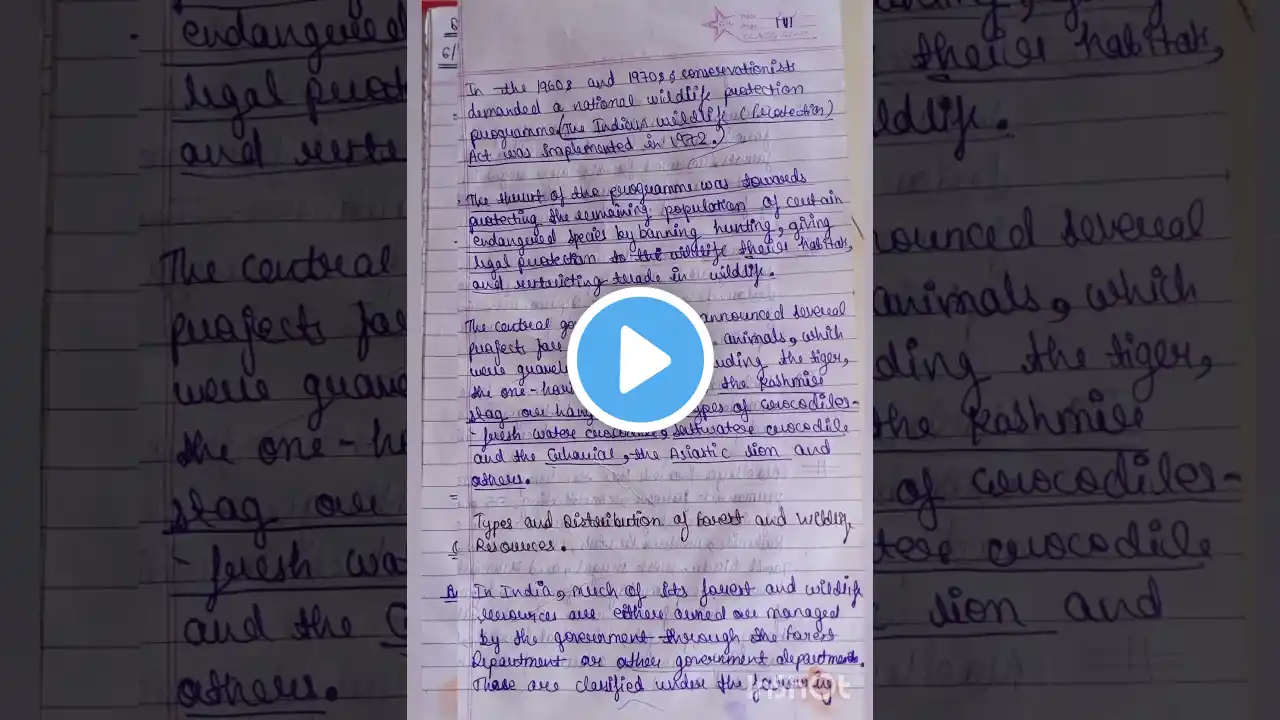 In the 1960s and 1970s, conservationists
demanded a national wildlife protection
programme (The Indian wildlife (Protection)
Act was implemented in 1972.)
The thrust of the programme was towards
protecting the remaining population of certain
endangered species by banning hunting, giving
legal protection to the wildlife their habitat,
and restricting trade in wildlife.
The central announced several
project for animals, which
were the tiger,
the one- the Kashmire
stag or of crocodiles-
- fresh water saltwater crocodile
and the Gharial, the Asiatic lion and
others.
Types and Distribution of Forest and Wildlife
C Resources.
A In India, much of its forest and wildlife
resources are either owned or managed
by the government through the Forest
Department or other government departments.
These are classified under the following